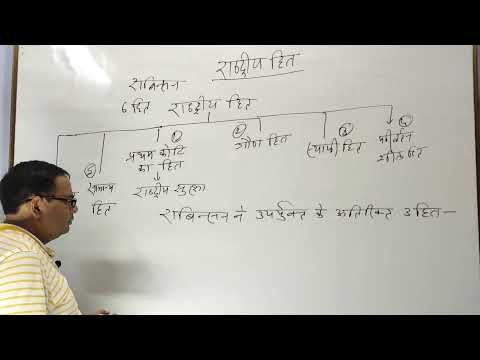 राष्ट्रीय हित
राबिन्सन
6 हित राष्ट्रीय हित
① प्रथम कोटि का हित
↓
राष्ट्रीय सुरक्षा
② गौण हित
③ स्थायी हित
④ परिवर्तन शील हित
⑤ सामान्य हित
राबिन्सन ने उपर्युक्त के अतिरिक्त 3 हित —